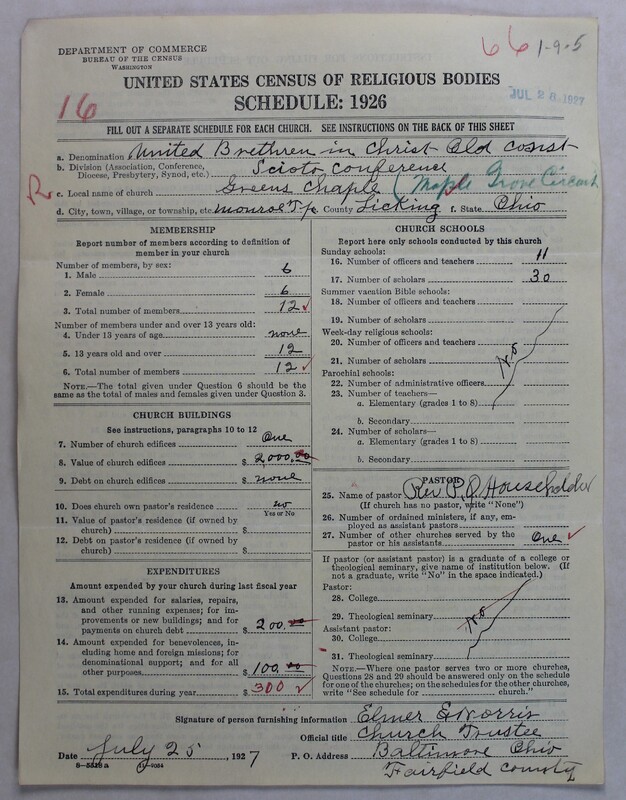 66 1-9-5
DEPARTMENT OF COMMERCE
BUREAU OF THE CENSUS
WASHINGTON
UNITED STATES CENSUS OF RELIGIOUS BODIES
JUL 28 1927
16
SCHEDULE: 1926
FILL OUT A SEPARATE SCHEDULE FOR EACH CHURCH. SEE INSTRUCTIONS ON THE BACK OF THIS SHEET
a. Denomination United Brethren in Christ Old Const
b. Division (Association, Conference, Diocese, Presbytery, Synod, etc.) Scioto Conference
R
c. Local name of church Greens Chaple (Maple Grove Circuit
d. City, town, village, or township, etc. Monroe Tp e. County Licking f. State Ohio
MEMBERSHIP
Report number of members according to definition of
member in your church
Number of members, by sex:
1. Male 6
2. Female 6
3. Total number of members 12 ✓
Number of members under and over 13 years old:
4. Under 13 years of age none
5. 13 years old and over 12
6. Total number of members 12 ✓
NOTE.—The total given under Question 6 should be
the same as the total of males and females given under Question 3.
CHURCH BUILDINGS
See instructions, paragraphs 10 to 12
7. Number of church edifices One
8. Value of church edifices $ 2,000.00
9. Debt on church edifices $ none
10. Does church own pastor's residence no
Yes or No
11. Value of pastor's residence (if owned by
church) $
12. Debt on pastor's residence (if owned by
church) $
EXPENDITURES
Amount expended by your church during last fiscal year
13. Amount expended for salaries, repairs,
and other running expenses; for im-
provements or new buildings; and for
payments on church debt $ 200.00
14. Amount expended for benevolences,
including home and foreign missions; for
denominational support; and for all
other purposes $ 100.00
15. Total expenditures during year $ 300 ✓
CHURCH SCHOOLS
Report here only schools conducted by this church
Sunday schools:
16. Number of officers and teachers 11
17. Number of scholars 30
Summer vacation Bible schools:
18. Number of officers and teachers
19. Number of scholars
Week-day religious schools:
20. Number of officers and teachers
21. Number of scholars
No
Parochial schools:
22. Number of administrative officers
23. Number of teachers—
a. Elementary (grades 1 to 8)
b. Secondary
24. Number of scholars—
a. Elementary (grades 1 to 8)
b. Secondary
PASTOR
25. Name of pastor Rev P. O. Householder
(If church has no pastor, write "None")
26. Number of ordained ministers, if any, em-
ployed as assistant pastors
27. Number of other churches served by the
pastor or his assistants One ✓
If pastor (or assistant pastor) is a graduate of a college or
theological seminary, give name of institution below. (If
not a graduate, write "No" in the space indicated.)
Pastor:
28. College
29. Theological seminary
No
Assistant pastor:
30. College
31. Theological seminary
NOTE.—Where one pastor serves two or more churches,
Questions 28 and 29 should be answered only on the schedule
for one of the churches; on the schedules for the other churches,
write "See schedule for church."
Signature of person furnishing information Elmer E Norris
Official title Church Trustee
Date July 25, 1927 P. O. Address Baltimore Ohio
Fairfield County